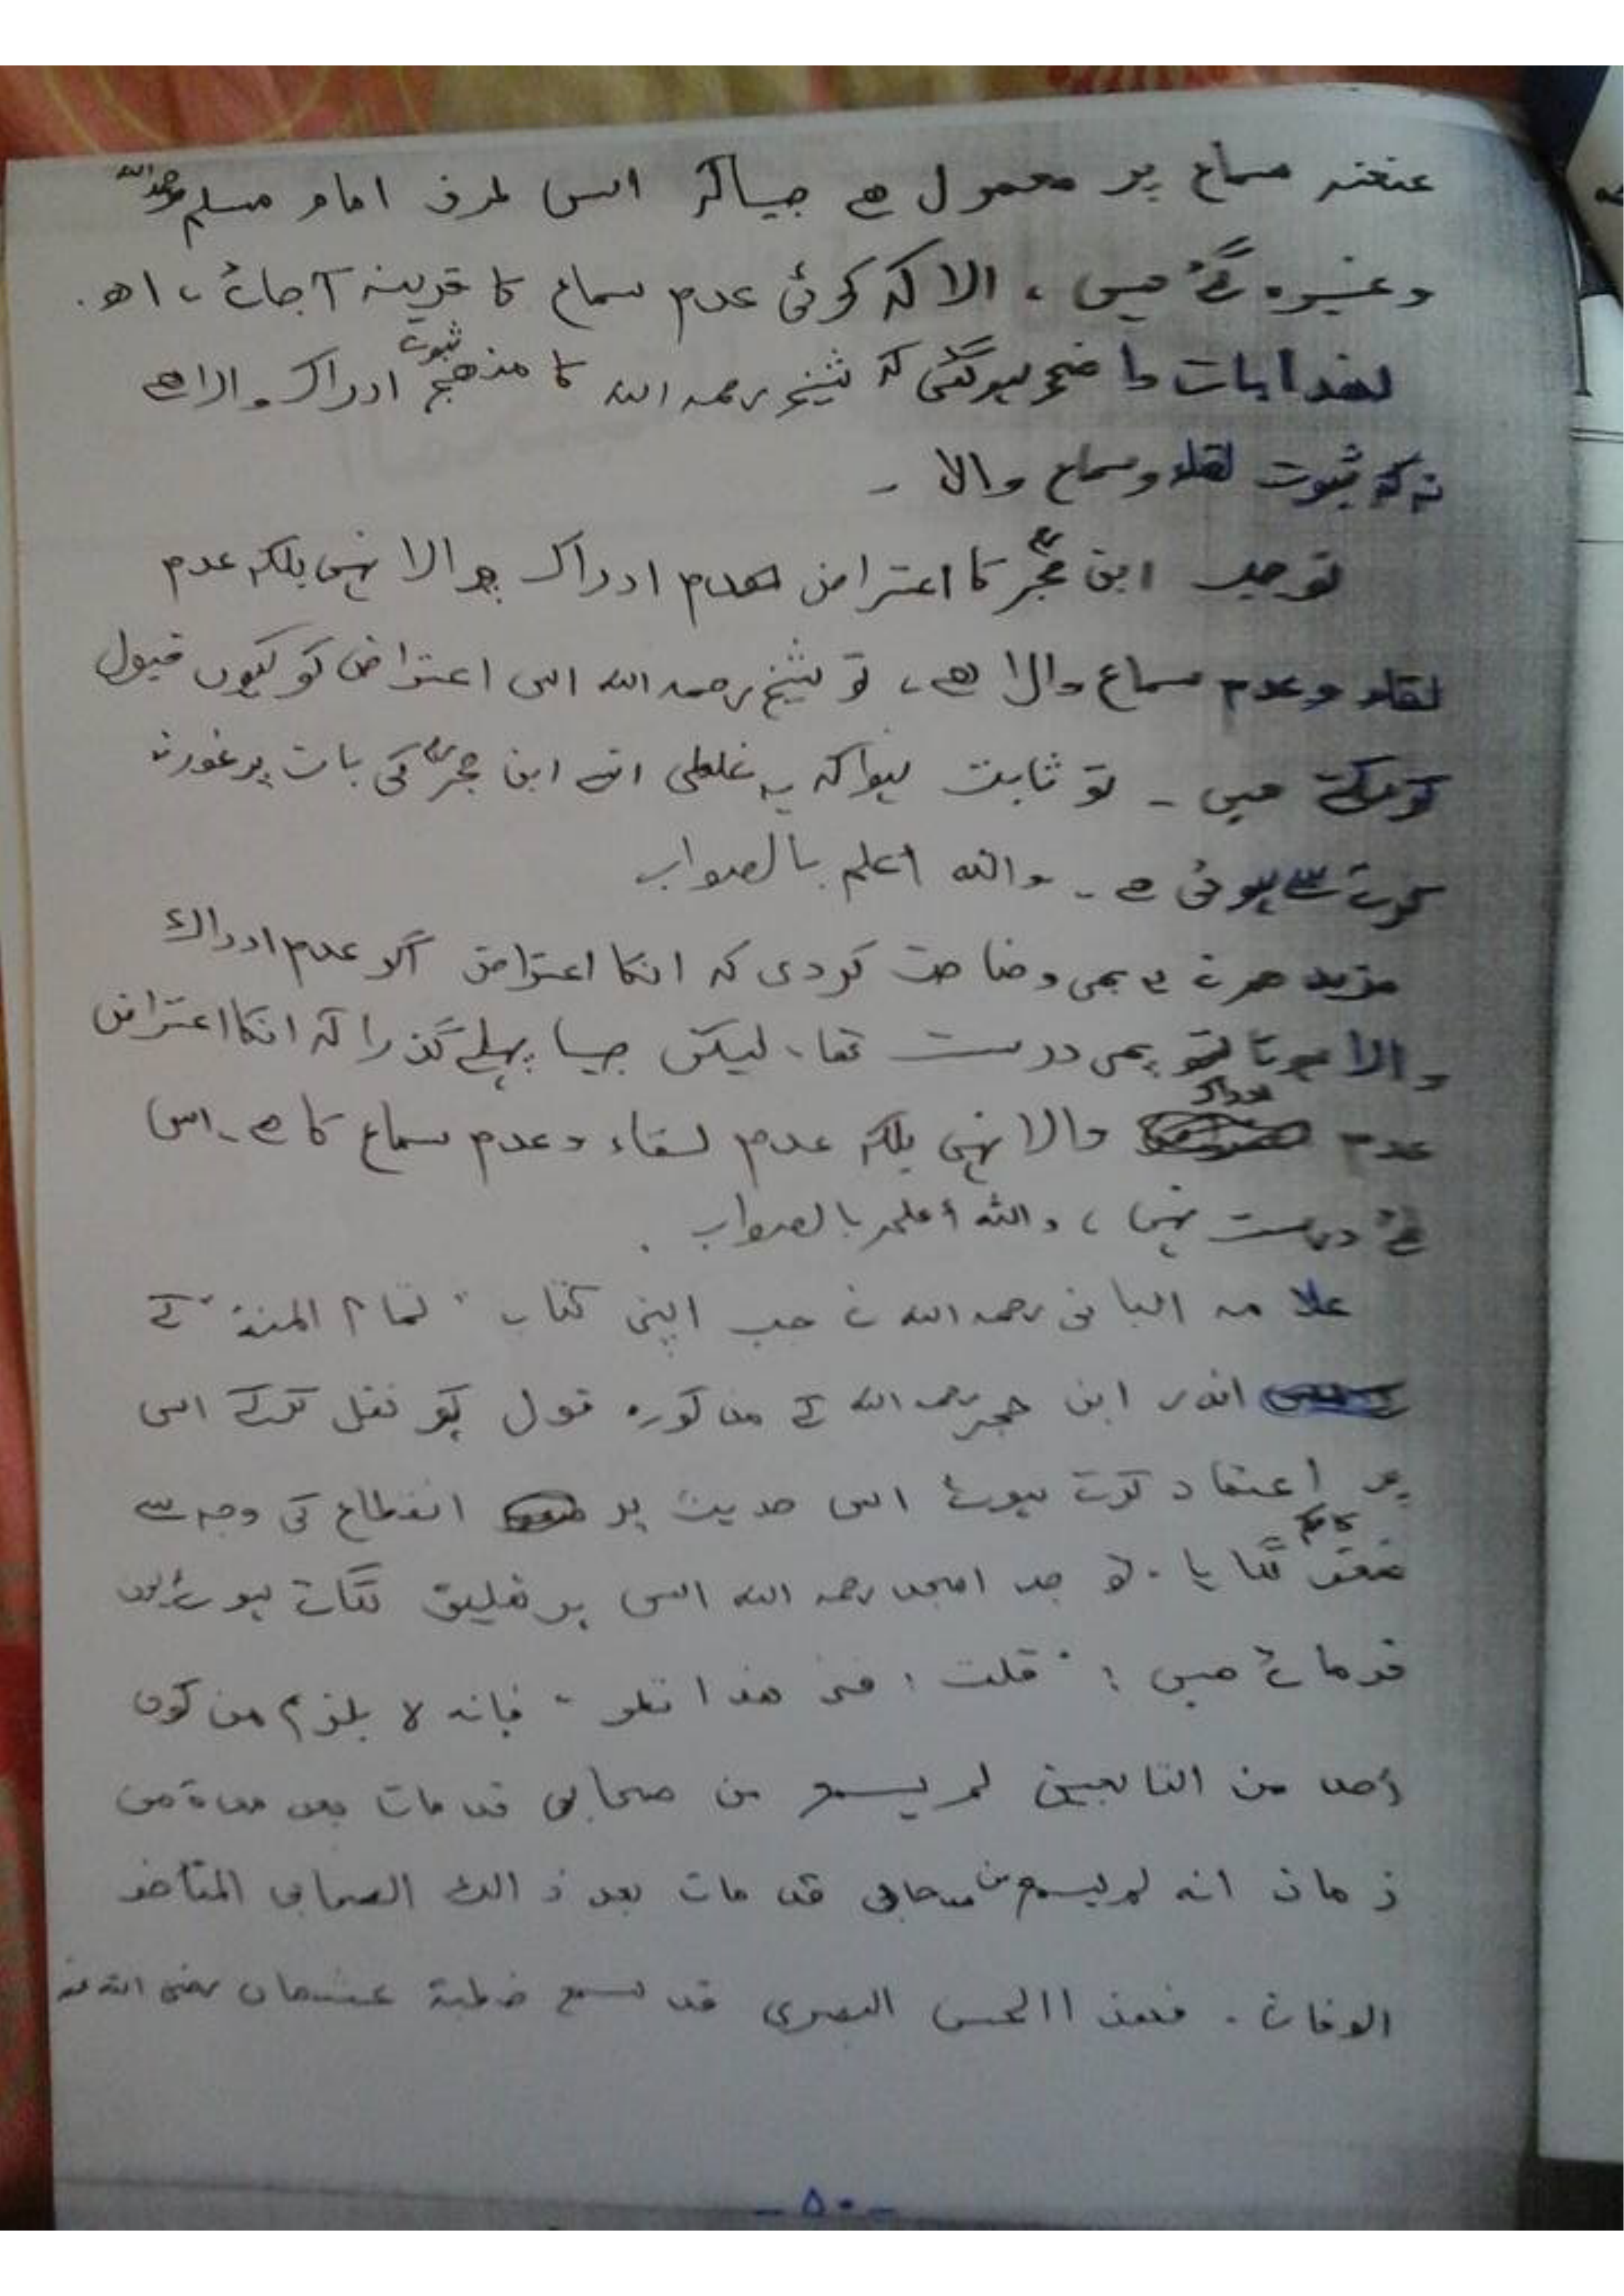 عنعنہ سماع پر محمول ہے جیساکہ اس طرف امام مسلم رحمہ اللہ
وغیرہ گئے ہیں ، الا کہ کوئی عدم سماع کا قرینہ آجائے ، اھ .
لھذا بات واضح ہوگئی کہ شیخ رحمہ اللہ کا منھج ثبوت ادراک والا ہے
نہ کہ ثبوت لقاء وسماع والا ۔
تو جب ابن حجرؒ کا اعتراض عدم ادراک والا نہیں بلکہ عدم
لقاء وعدم سماع والا ہے ، تو شیخ رحمہ اللہ اس اعتراض کو کیوں قبول
کرسکتے ہیں ۔ تو ثابت ہوا کہ یہ غلطی ابن حجرؒ کی بات پر غور نہ
کرنے سے ہوئی ہے ۔ واللہ اعلم بالصواب
مزید وضاحت کردی کہ انکا اعتراض اگر عدم ادراک
والا ہوتا تو بھی درست تھا ، لیکن جیسا پہلے گذرا کہ انکا اعتراض
عدم ادراک والا نہیں بلکہ عدم لقاء وعدم سماع کا ہے ۔ اس
لئے درست نہیں ، واللہ أعلم بالصواب .
علامہ البانی رحمہ اللہ نے جب اپنی کتاب " تمام المنۃ " کے
اندر ابن حجر رحمہ اللہ کے مذکورہ قول کو نقل کرکے اس
پر اعتماد کرتے ہوئے اس حدیث پر انقطاع کی وجہ سے
ضعف کا حکم لگایا . تو جد امجد رحمہ اللہ اس پر تعلیق لگاتے ہوئے یوں
فرماتے ہیں : " قلت : فی ھذا نظر " فإنه لا يلزم من كون
أحد من التابعين لم يسمع من صحابي قد مات بعد مدة من
زمان انه لم يسمع من صحابي قد مات بعد ذالك الصحابي المتأخر
الوفات . فھذا الحسن البصري قد سمع خطبة عثمان رضى الله عنه
- ۵۰ -